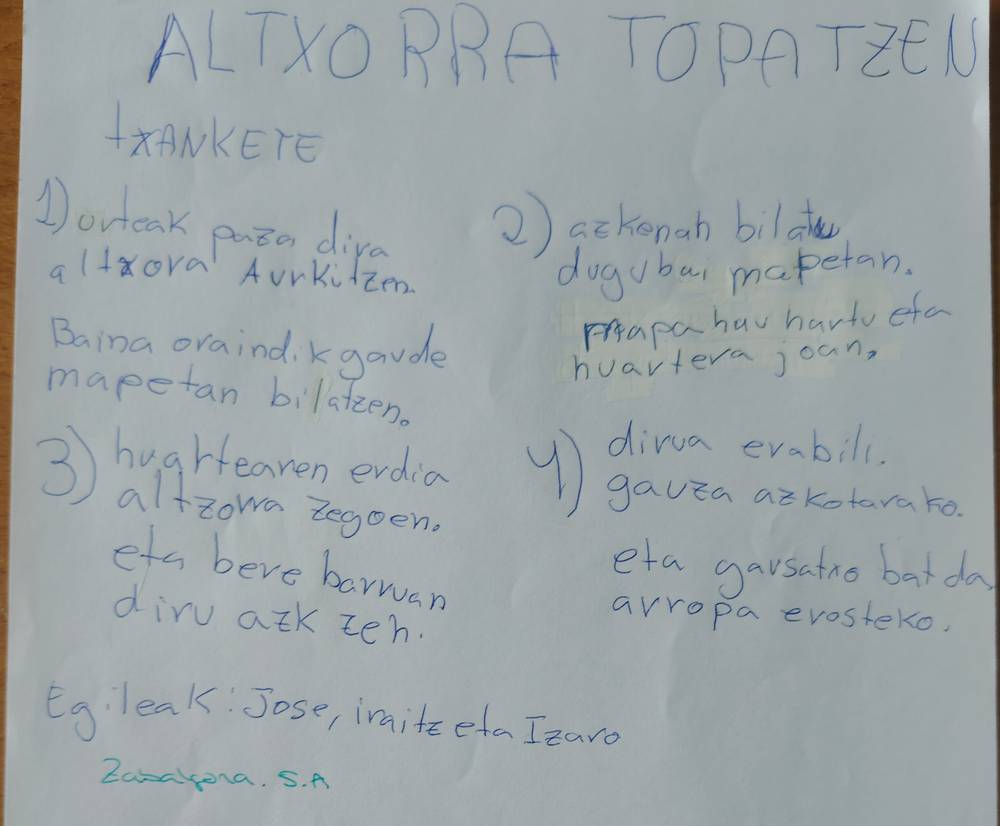 ALTXORRA TOPATZEN
txANKETE
1) urteak paza dira
altxora Aurkitzen.
Baina oraindik gaude
mapetan bilatzen.
2) azkenah bilatu
dugubai mapetan.
mapa hau hartu eta
huartera joan.
3) huartearen erdia
altzorra zegoen.
eta bere barruan
diru azk zeh.
4) dirua erabili.
gauza azkotarako.
eta gausatxo bat da
arropa erosteko.
Egileak: Jose, iraitz eta Izaro
S.A